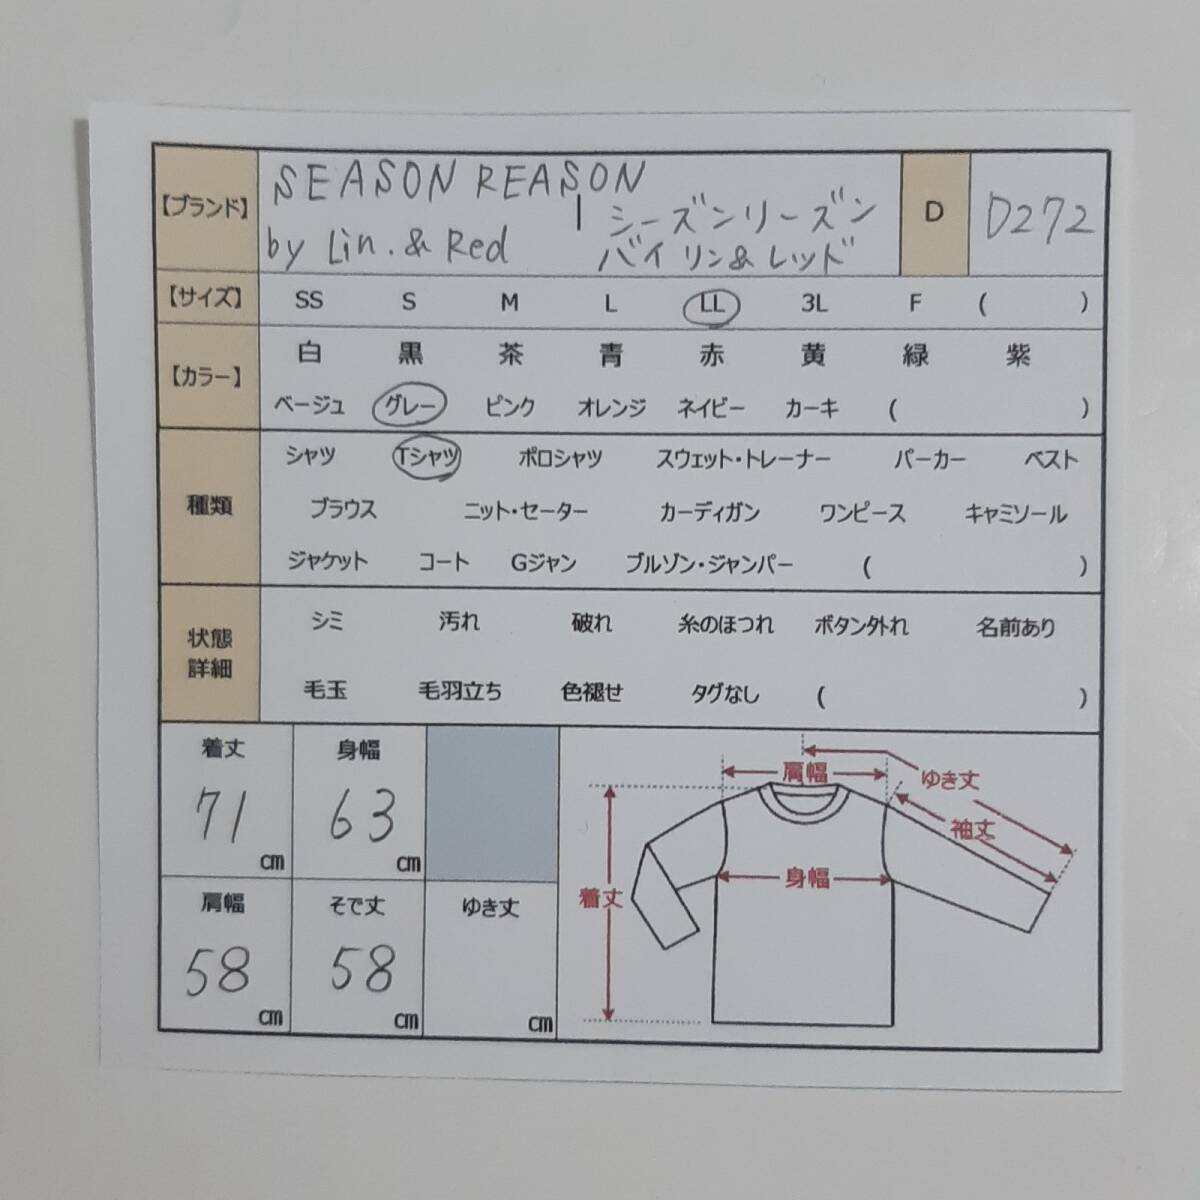 【ブランド】 SEASON REASON
by Lin. & Red
シーズンリーズン
バイ リン&レッド
D D272
【サイズ】 SS S M L LL 3L F ( )
【カラー】 白 黒 茶 青 赤 黄 緑 紫
ベージュ グレー ピンク オレンジ ネイビー カーキ ( )
種類 シャツ Tシャツ ポロシャツ スウェット・トレーナー パーカー ベスト
ブラウス ニット・セーター カーディガン ワンピース キャミソール
ジャケット コート Gジャン ブルゾン・ジャンパー ( )
状態
詳細
シミ 汚れ 破れ 糸のほつれ ボタン外れ 名前あり
毛玉 毛羽立ち 色褪せ タグなし ( )
着丈 身幅
71 cm 63 cm
肩幅 そで丈 ゆき丈
58 cm 58 cm cm
肩幅
ゆき丈
袖丈
身幅
着丈